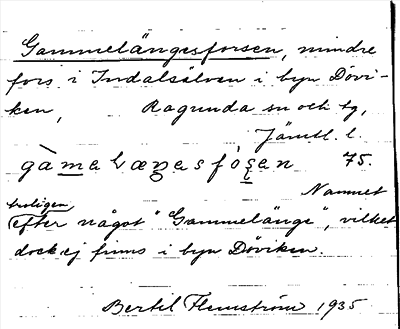 Gammelängesforsen, mindre
fors i Indalsälven i byn Dövi-
ken, Ragunda sn och tg,
Jämtl. l.
75.
Namnet
troligen
efter något "Gammelänge", vilket
dock ej finns i byn Döviken.
Bertel Flemström 1935